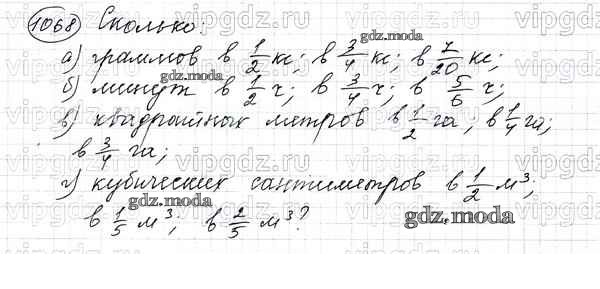 1068 Сколько:
а) граммов в 1/2 кг; в 3/4 кг; в 7/20 кг;
б) минут в 1/2 ч; в 3/4 ч; в 5/6 ч;
в) квадратных метров в 1/2 га, в 1/4 га;
в 3/4 га;
г) кубических сантиметров в 1/2 м³;
в 1/5 м³, в 2/5 м³?
gdz.moda
gdz.moda
gdz.moda
vipgdz.ru